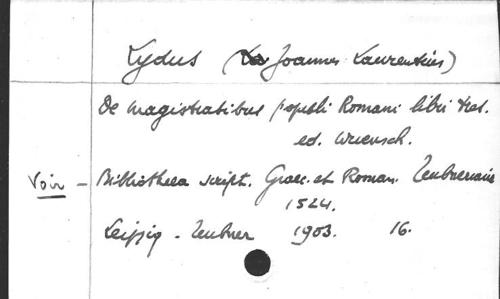 Lydus (Joannes Laurentius)
De magistratibus populi Romani libri tres.
ed. Wuensch.
Voir - Bibliotheca script. Graec. et Roman. Teubneriana
1524.
Leipzig - Teubner 1903. 16.